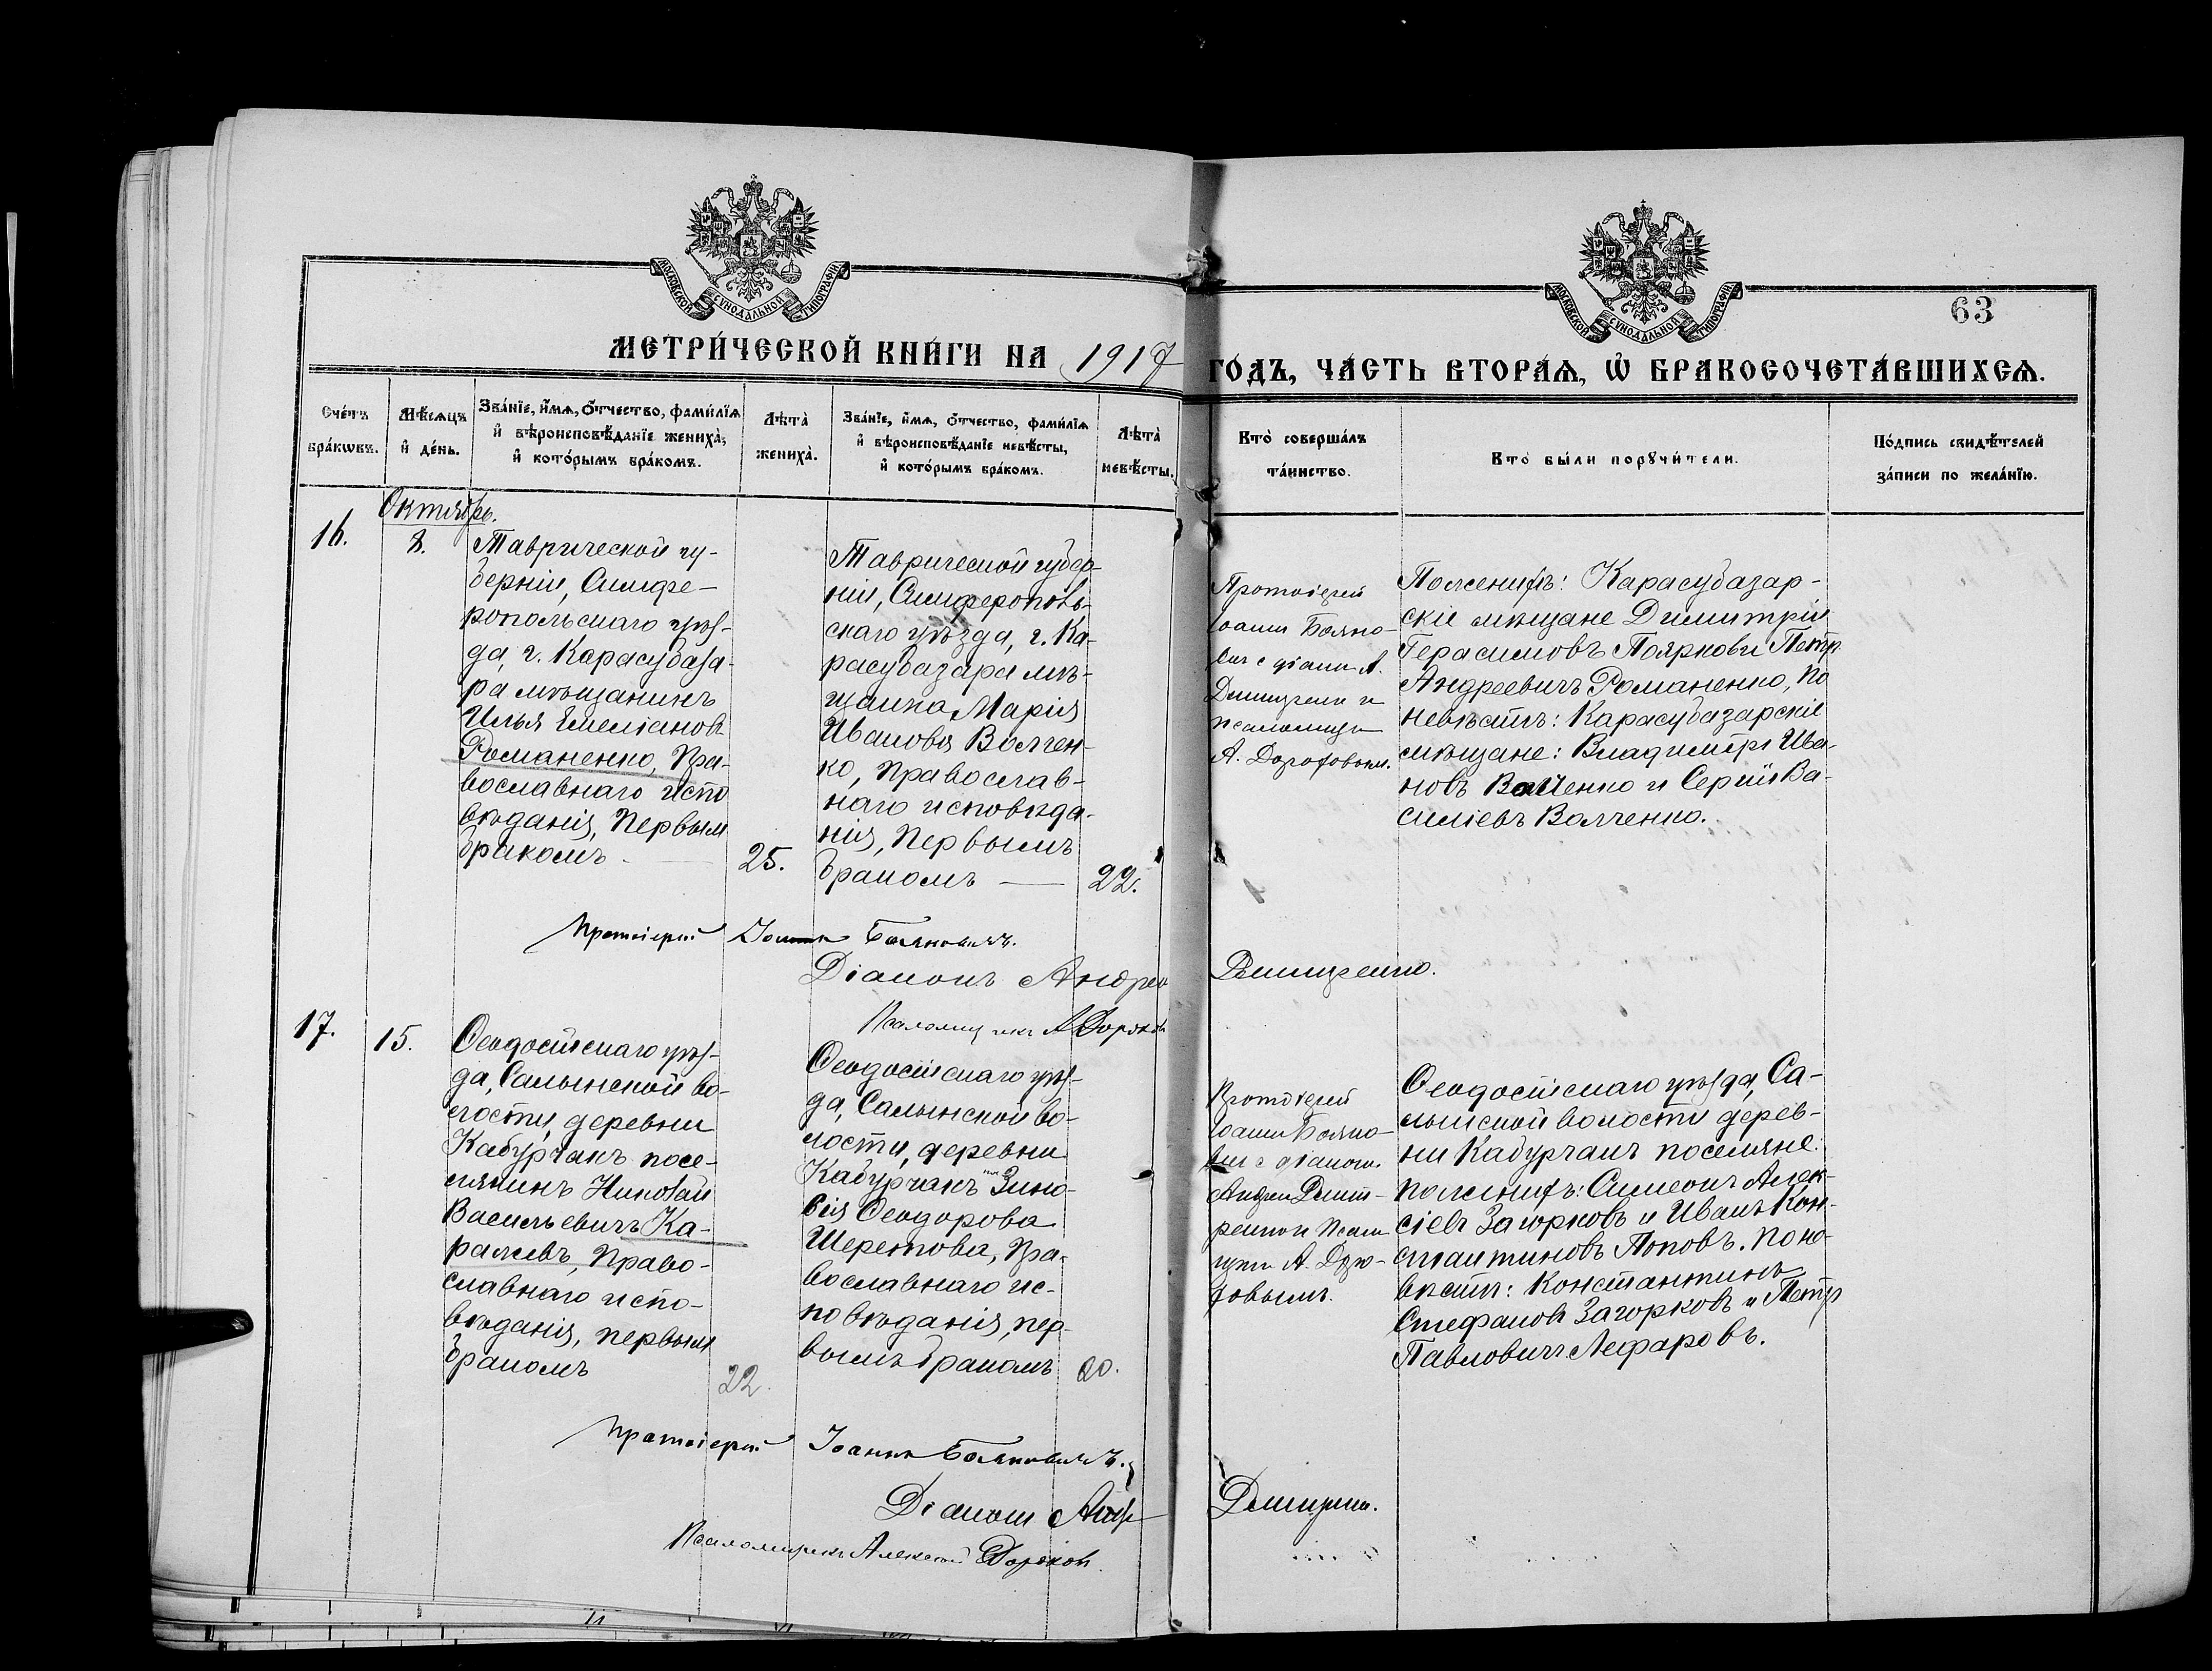 МОСКОВСКОЙ СУНОДАЛЬНОЙ ТИПОГРАФІИ
МОСКОВСКОЙ СУНОДАЛЬНОЙ ТИПОГРАФІИ
63
МЕТРИ́ЧЕСКОЙ КНИ́ГИ НА 1917 ГОДЪ, ЧА́СТЬ ВТОРА́Ѧ, Ѡ҆ БРАКОСОЧЕТА́ВШИХСѦ.
Сче́тъ
бра́кѡвъ.
Мѣ́сѧцъ
и҆ де́нь.
Зва́нїе, и҆́мѧ, ѻ҆́тчество, фами́лїѧ
и҆ вѣроисповѣ́данїе жениха̀,
и҆ кото́рымъ бра́комъ.
Лѣта̀
жениха̀.
Зва́нїе, и҆́мѧ, ѻ҆́тчество, фами́лїѧ
и҆ вѣроисповѣ́данїе невѣ́сты,
и҆ кото́рымъ бра́комъ.
Лѣта̀
невѣ́сты.
Кто̀ соверша́лъ
та́инство.
Кто̀ бы́ли порꙋчи́тели.
По́дпись свидѣ́телей
за́писи по жела́нїю.
Октябрь.
16.
8.
Таврической гу-
берніи, Симфе-
ропольскаго уѣз-
да, г. Карасубаза-
ра мѣщанинъ
Илья Емеліановъ
Романенко, Пра-
вославнаго испо
вѣданія, Первым
бракомъ
25.
Таврической губер-
ніи, Симферополь-
скаго уѣзда, г. Ка-
расубазара мѣ-
щанка Марія
Иванова Волчен-
ко, Православ-
наго исповѣда-
нія, Первымъ
бракомъ
22.
Протоіерей
Іоанн Бояно-
вич с діакон А.
Дмитренко и
псаломщик
А.
По женихѣ: Карасубазар-
скіе мѣщане Димитрій
Герасимовъ Поярков и Петр
Андреевичъ Романенко, По
невѣстѣ: Карасубазарскіе
мѣщане: Владиміръ Ива-
новъ Волченко и Сергій Ва-
силіевъ Волченко.
Протоіерей Іоаннъ Бояновичъ.
Діаконъ Андрей Дмитренко.
Псаломщикъ А.
17.
15.
Ѳеодосійскаго уѣз-
да, Салынской во-
лости, деревни
Кабурчакъ посе-
лянинъ Николай
Васильевичъ Ка-
ражевъ, Право-
славнаго испо-
вѣданія, первым
бракомъ
22.
Ѳеодосійскаго уѣз-
да, Салынской во-
лости, деревни
Кабурчакъ Зино-
вія Ѳеодорова
Шеретова, Пра-
вославнаго ис-
повѣданія, пер-
вымъ бракомъ
20.
Протоіерей
Іоанн Бояно-
вич с діакон.
Андреем Дмит-
ренко и Псалом
щик А.
Ѳеодосійскаго уѣзда, Са-
лынской волости дерев-
ни Кабурчакъ поселяне:
по женихѣ: Симеонъ Алек-
сіевъ Загорковъ и Иванъ Кон-
стантиновъ Поповъ. По не-
вѣстѣ: Константинъ
Стефановъ Загорковъ и Петр
Павловичъ
Протоіерей Іоаннъ Бояновичъ.
Діаконъ Андр Дмитренко.
Псаломщикъ Алексей